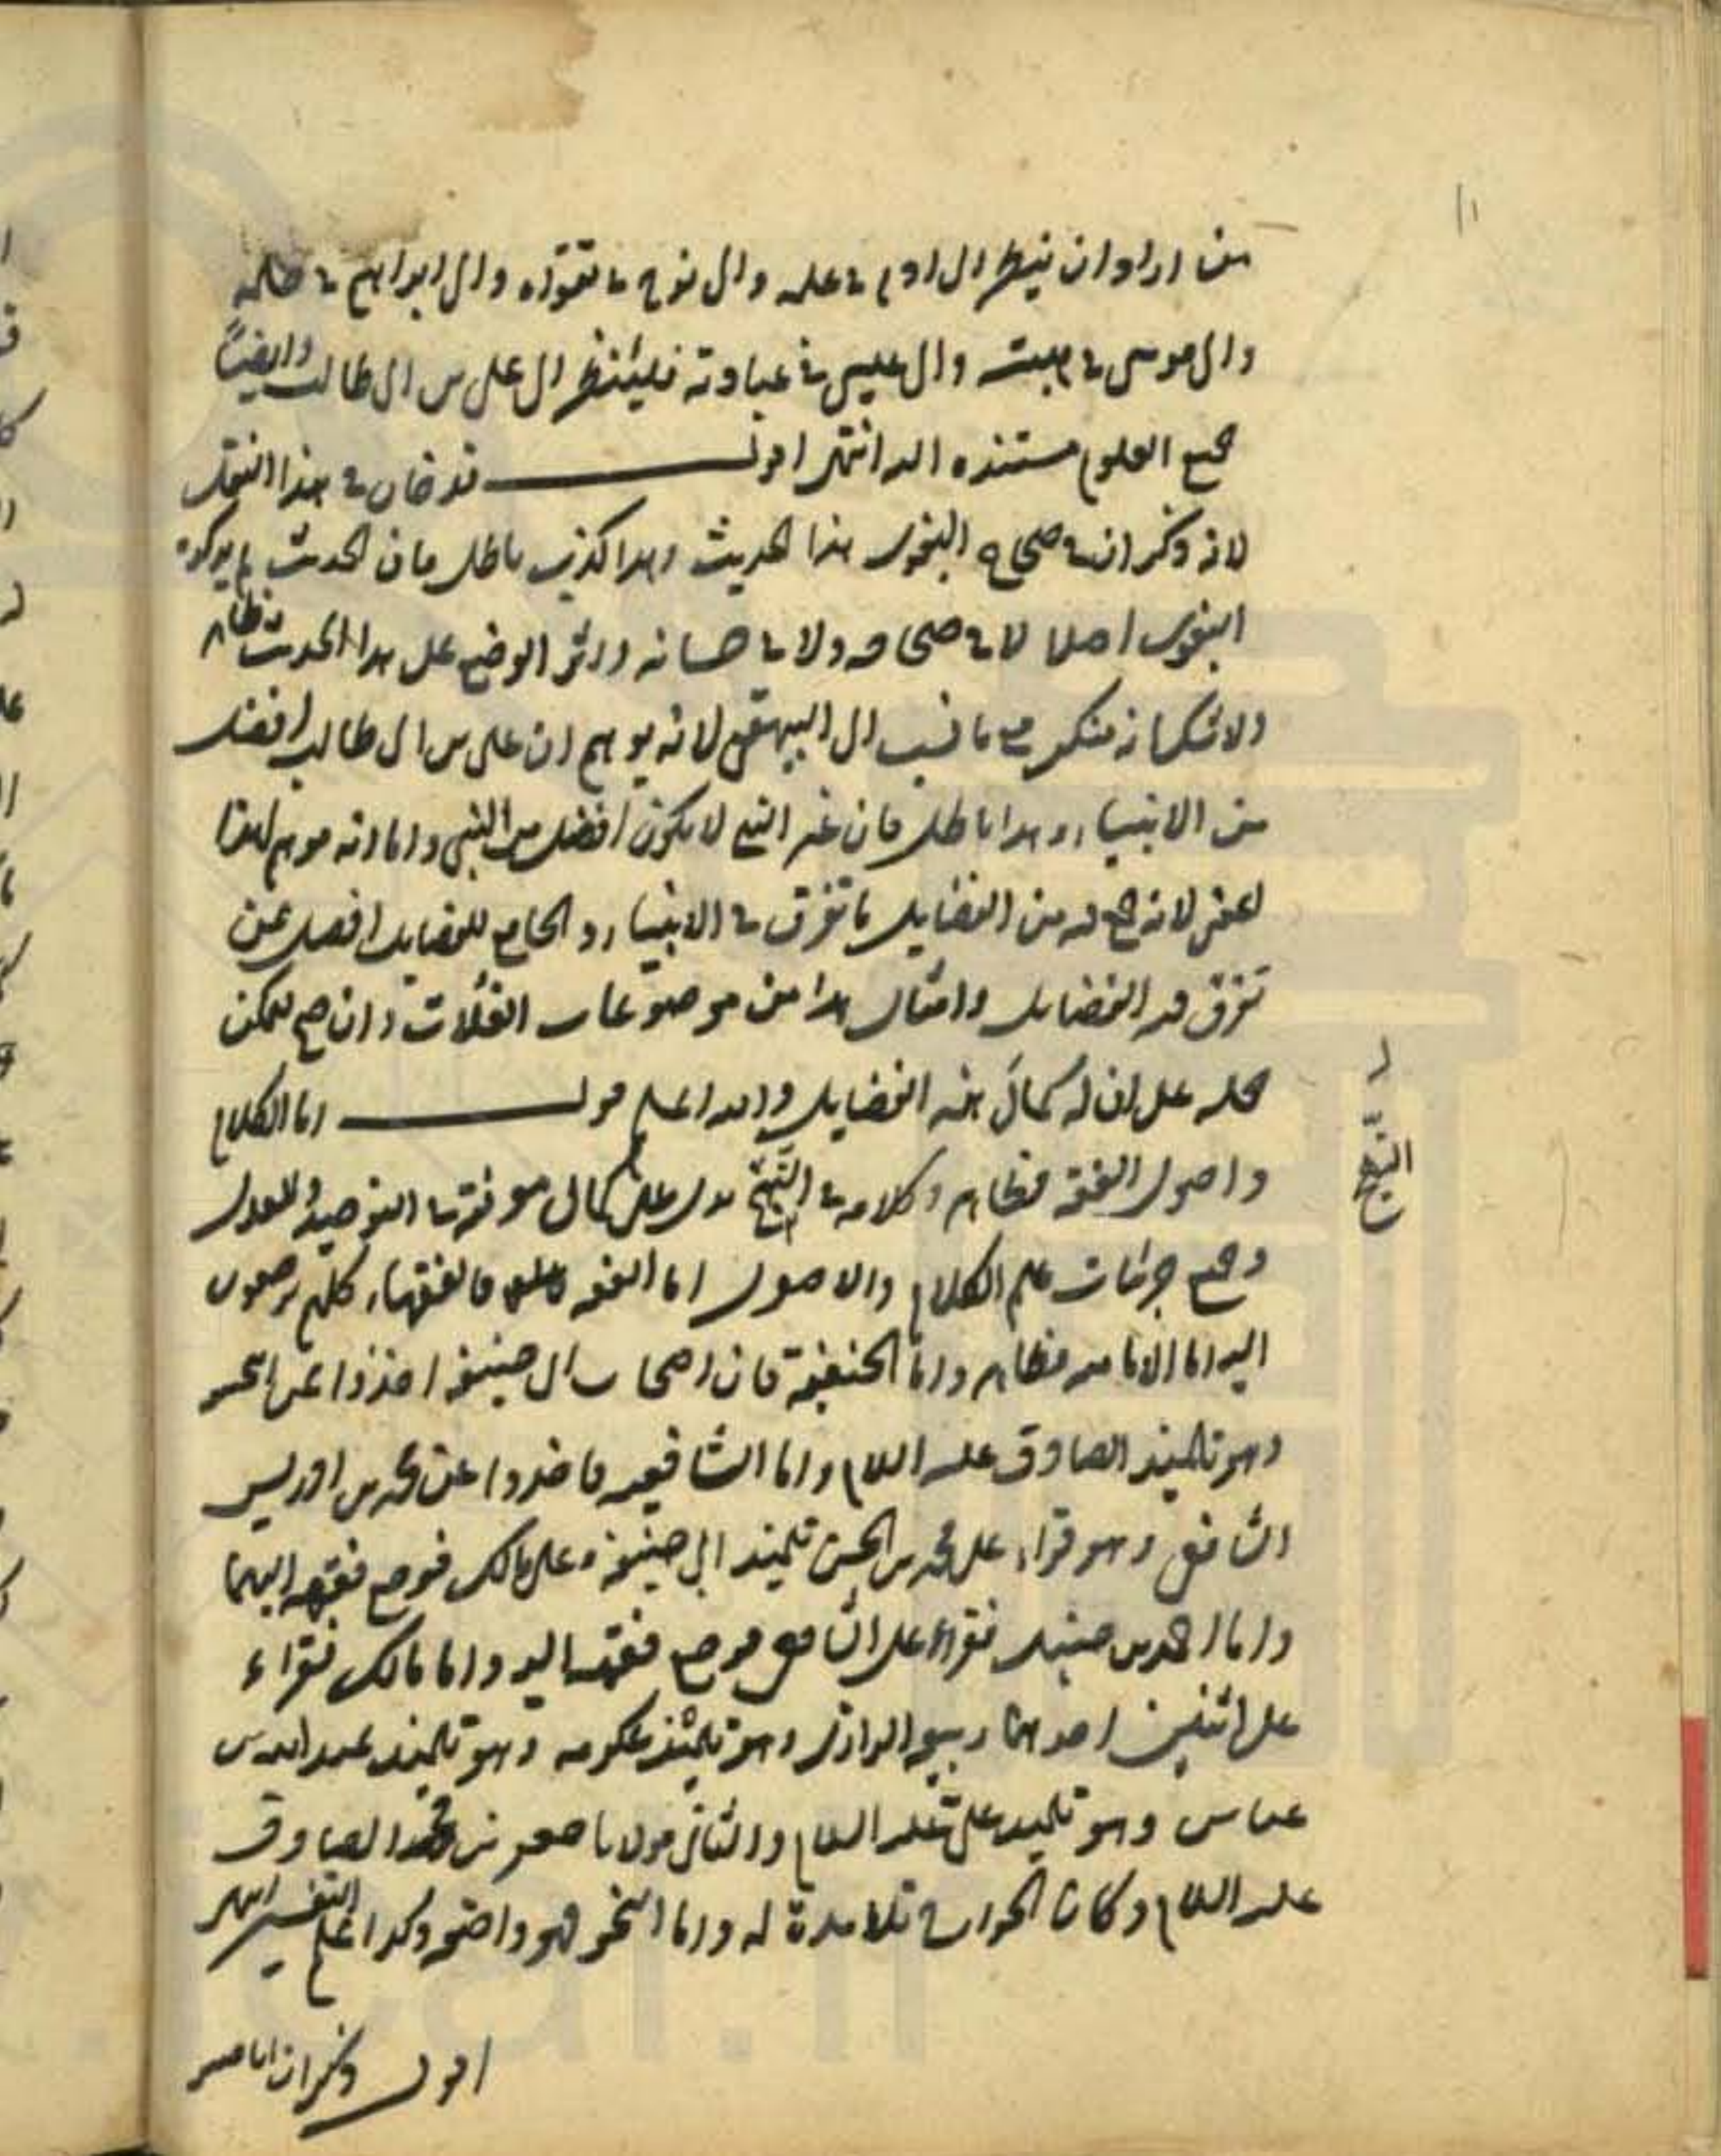 من اراد ان ينظر الى ادم في علمه والى نوح في تقوىه والى ابراهيم في حلمه
والى موسى في هيبته والى عيسى في عبادته فلينظر الى على بن ابى طالب وايضاً
جميع العلوم مستنده اليه انتهى اقول قد خان في هذا النقل
لانه ذكر ان في صحاح البغوى هذا الحديث وهذا كذب باطل فان الحديث لم يذكره
البغوى اصلا لا في صحاحه ولا في حسانه واثر الوضع على هذا الحديث ظاهر
ولا شك انه منكر مع ما نسب الى البيهقى لانه يوهم ان على بن ابى طالب افضل
من الانبياء وهذا باطل فان غير النبى لا يكون افضل من النبى واما انه موهم لهذا
المعنى لانه جمع له من الفضايل ما تفرق في الانبياء والجامع للفضايل افضل ممن
تفرق فيه الفضايل وامثال هذا من موضوعات الغلات وان صح يمكن
حمله على ان له كمال هذه الفضايل والله اعلم قوله اما الكلام
واصول الفقه فظاهر وكلامه في النهج يدل على كمال معرفته في التوحيد والعدل
وجميع جزئيات علم الكلام والاصول اما الفقه فالفقهاء كلهم يرجعون
اليه اما الاماميه فظاهر واما الحنفية فان اصحاب ابى حنيفه اخذوا عن ابى حنيفه
وهو تلميذ الصادق عليه السلام واما الشافعيه فاخذوا عن محمد بن ادريس
الشافعى وهو قراء على محمد بن الحسن تلميذ ابى حنيفه وعلى مالك فرجع فقهه اليهما
واما احمد بن حنبل فقراء على الشافعى فرجع فقهه اليه واما مالك فقراء
على اثنين احدهما ربيعه الرازى وهو تلميذ عكرمه وهو تلميذ عبد الله بن
عباس وهو تلميذ على عليه السلام والثانى مولانا جعفر بن محمد الصادق
عليه السلام وكان الخوارج تلامذة له واما النحو فهو واضعه وكذا علم التفسير انتهى
اقول ذكر ان الامام
النهج